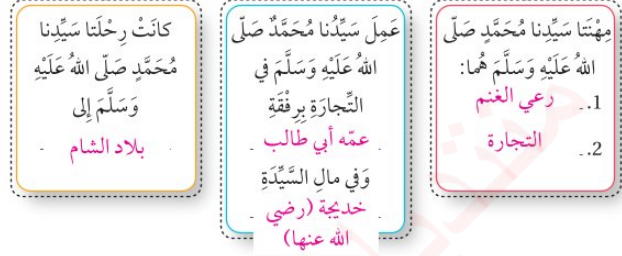 مِهْنَتَا سَيِّدِنا مُحَمَّدٍ صَلَّى
اللهُ عَلَيْهِ وَسَلَّمَ هُما:
1. رعي الغنم
2. التجارة
عَمِلَ سَيِّدُنا مُحَمَّدٌ صَلَّى
اللهُ عَلَيْهِ وَسَلَّمَ في
التِّجارَةِ بِرِفْقَةِ
عمّه أبي طالب
وَفي مالِ السَّيِّدَةِ
خديجة (رضي
الله عنها)
كانَتْ رِحْلَتا سَيِّدِنا
مُحَمَّدٍ صَلّى اللهُ عَلَيْهِ
وَسَلَّمَ إِلى
بلاد الشام